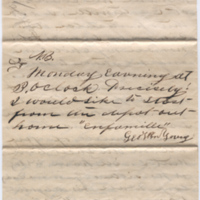 N.B.
Monday Evening at
8. O'Clock Precisely:
I would like to start
from the depot and
home "Enfamille"
Geo. Young